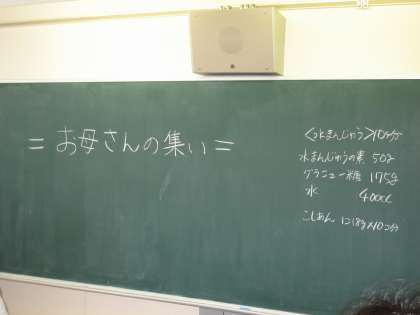 ＝お母さんの集い＝
＜水まんじゅう＞10コ分
水まんじゅうの素 50g
グラニュー糖 175g
水 400cc
こしあん 1コ18g×10コ分